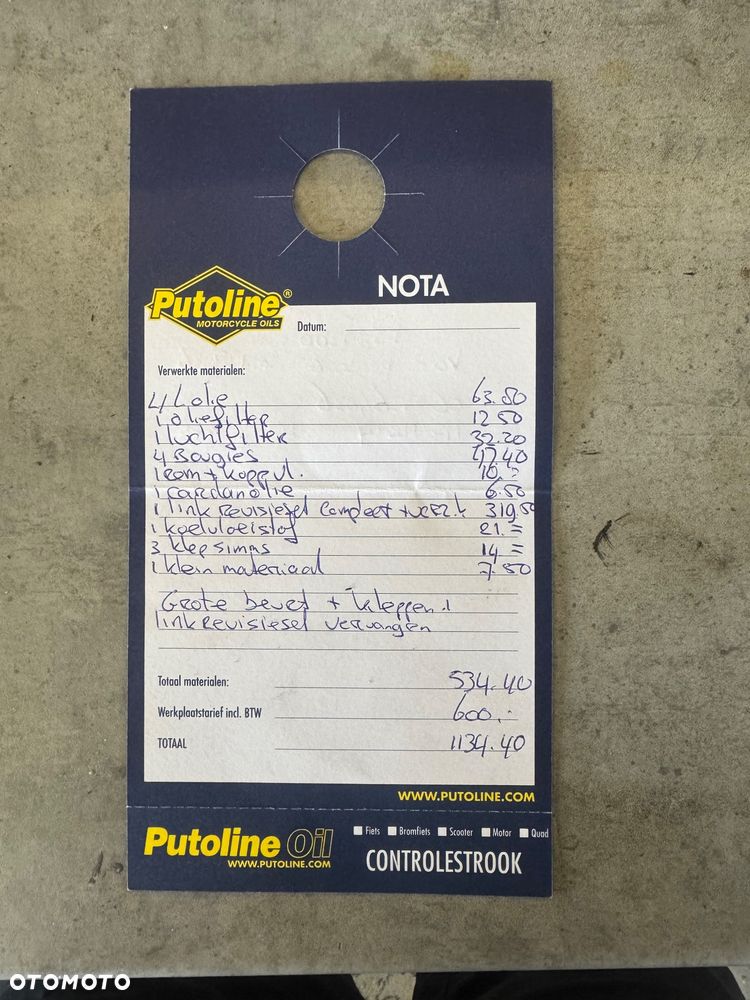 NOTA
Putoline®
MOTORCYCLE OILS
Datum:
Verwerkte materialen:
4 L olie 63.50
1 oliefilter 12.50
1 luchtfilter 32.20
4 Bougies 47.40
1 rem + koppvl. 10,=
1 cardanolie 6.50
1 link revisieset compleet + 319.50
1 koelvloeistof 21.=
3 klepsimms 14=
1 klein materiaal 7.50
Grote beurt + kleppen
link Revisieset vervangen
Totaal materialen: 534.40
Werkplaatstarief incl. BTW 600,-
TOTAAL 1134.40
WWW.PUTOLINE.COM
Putoline Oil
WWW.PUTOLINE.COM
Fiets Bromfiets Scooter Motor Quad
CONTROLESTROOK
OTOMOTO